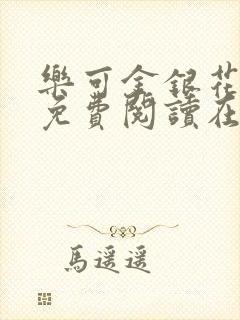 樂可金銀花
免費閱讀在
馬遥遥